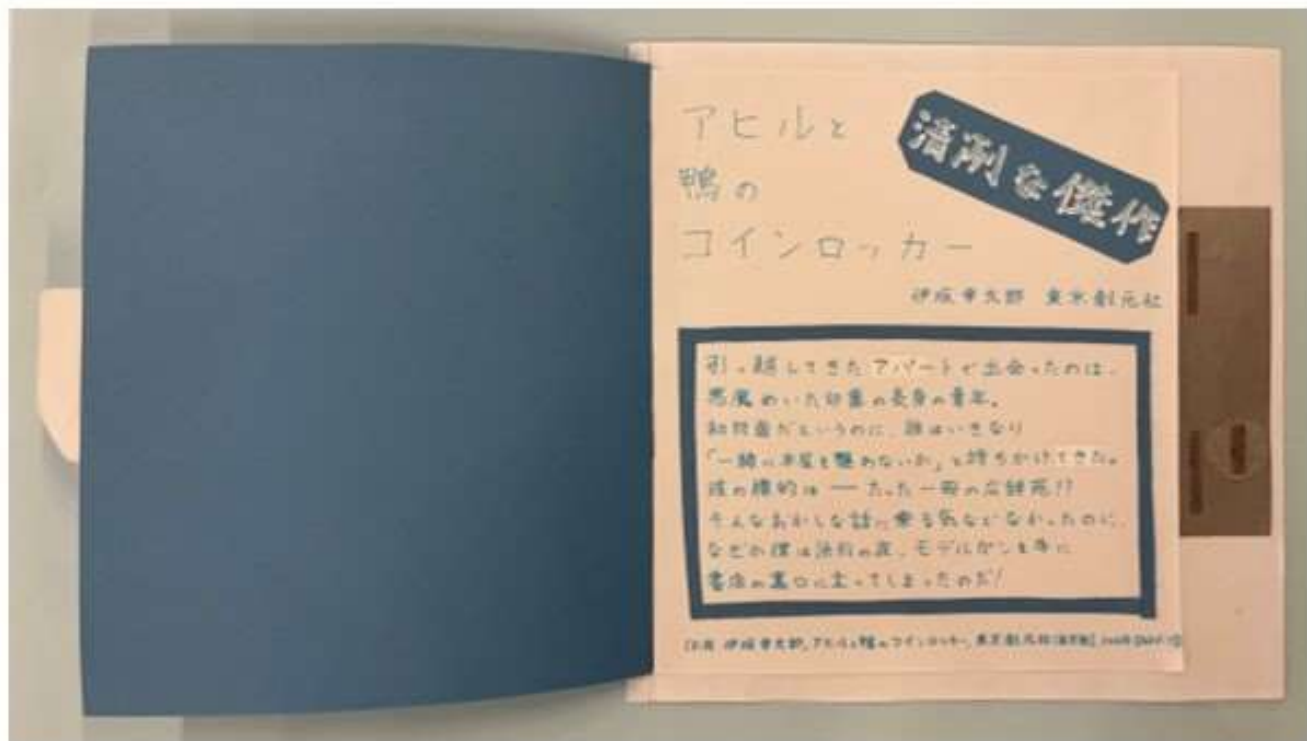 アヒルと
鴨の
コインロッカー
清冽な傑作
伊坂幸太郎 東京創元社
引っ越してきたアパートで出会ったのは、
悪魔めいた印象の長身の青年。
初対面だというのに、彼はいきなり
「一緒に本屋を襲わないか」と持ちかけてきた。
彼の標的は ── たった一冊の広辞苑!?
そんなおかしな話に乗る気などなかったのに、
なぜか僕は決行の夜、モデルガンを手に
書店の裏口に立ってしまったのだ!
伊坂幸太郎, アヒルと鴨のコインロッカー, 東京創元社